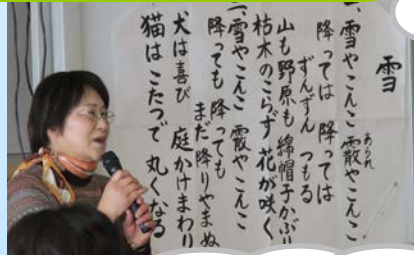 雪
一、雪やこんこ 霰やこんこ
あられ
降っては 降っては
ずんずん つもる
山も野原も 綿帽子かぶり
枯木のこらず 花が咲く
二、雪やこんこ 霰やこんこ
降っても 降っても
まだ降りやまぬ
犬は喜び 庭かけまわり
猫はこたつで 丸くなる